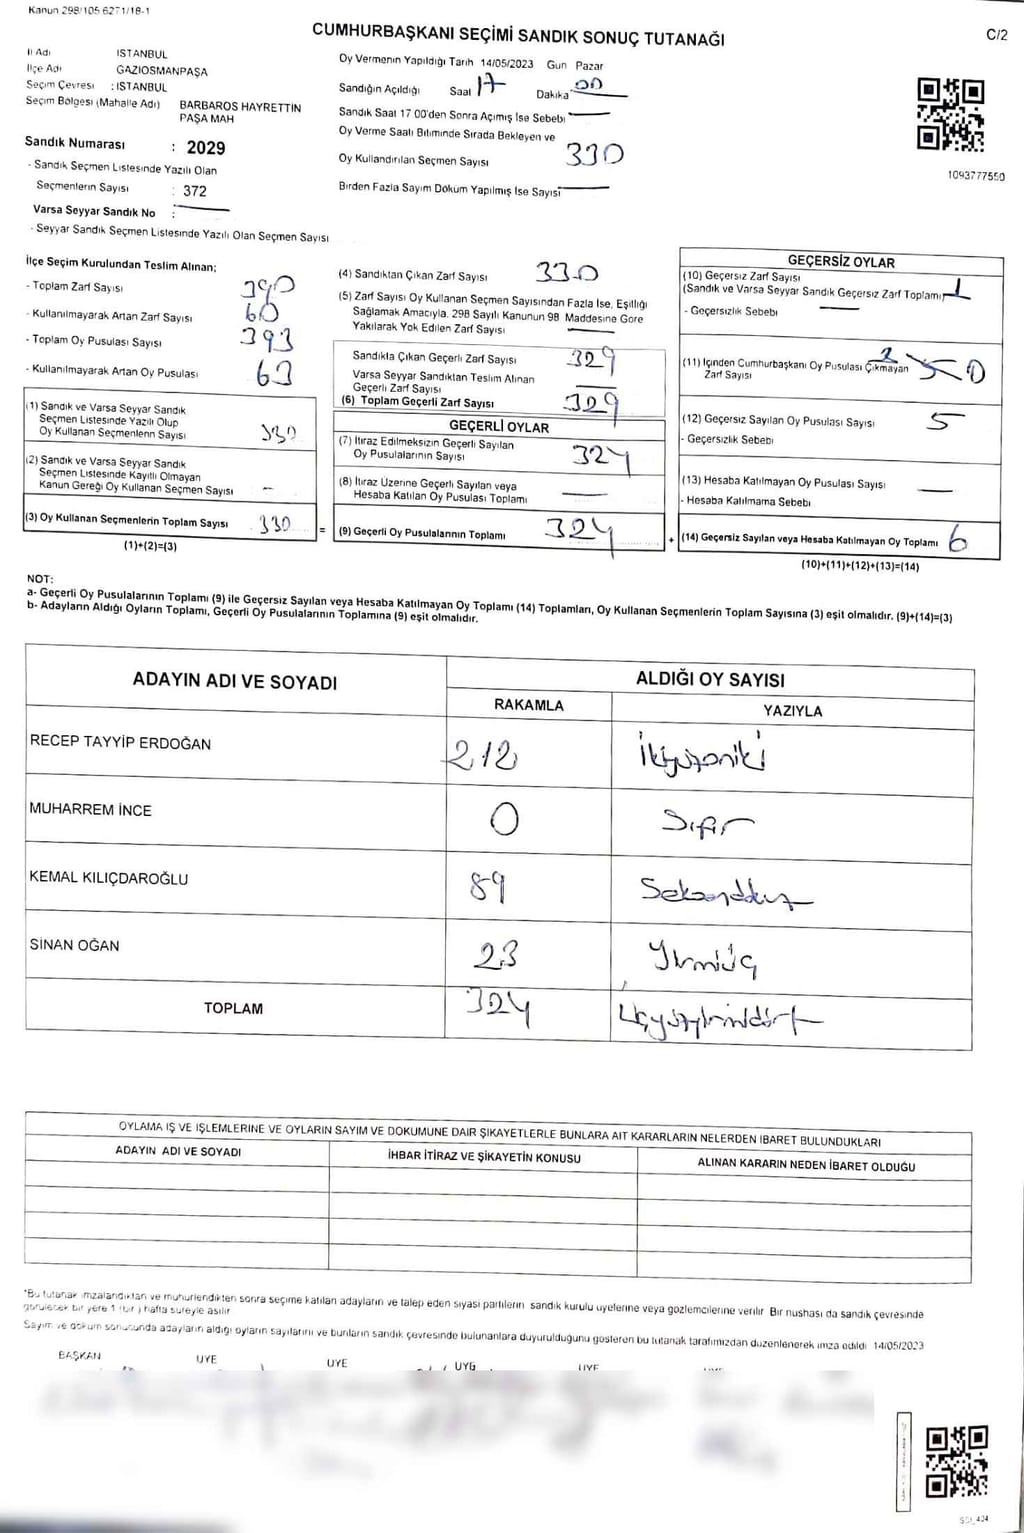 Kanun 298/105 6271/18-1
CUMHURBAŞKANI SEÇİMİ SANDIK SONUÇ TUTANAĞI
C/2
İl Adı ISTANBUL
İlçe Adı GAZIOSMANPAŞA
Seçim Çevresi : ISTANBUL
Seçim Bölgesi (Mahalle Adı) BARBAROS HAYRETTIN
PAŞA MAH
Sandık Numarası : 2029
- Sandık Seçmen Listesinde Yazılı Olan
Seçmenlerin Sayısı : 372
Varsa Seyyar Sandık No :
- Seyyar Sandık Seçmen Listesinde Yazılı Olan Seçmen Sayısı
Oy Vermenin Yapıldığı Tarih 14/05/2023 Gun Pazar
Sandığın Açıldığı Saat 17 Dakika 00
Sandık Saat 17 00'den Sonra Açımış İse Sebebi
Oy Verme Saati Bitiminde Sırada Bekleyen ve
Oy Kullandırılan Seçmen Sayısı 330
Birden Fazla Sayım Döküm Yapılmış İse Sayısı
1093777550
İlçe Seçim Kurulundan Teslim Alınan;
- Toplam Zarf Sayısı 390
- Kullanılmayarak Artan Zarf Sayısı 60
- Toplam Oy Pusulası Sayısı 393
- Kullanılmayarak Artan Oy Pusulası 63
(1) Sandık ve Varsa Seyyar Sandık
Seçmen Listesinde Yazılı Olup
Oy Kullanan Seçmenlerin Sayısı 330
(2) Sandık ve Varsa Seyyar Sandık
Seçmen Listesinde Kayıtlı Olmayan
Kanun Gereği Oy Kullanan Seçmen Sayısı -
(3) Oy Kullanan Seçmenlerin Toplam Sayısı 330 =
(1)+(2)=(3)
(4) Sandıktan Çıkan Zarf Sayısı 330
(5) Zarf Sayısı Oy Kullanan Seçmen Sayısından Fazla İse, Eşitliği
Sağlamak Amacıyla, 298 Sayılı Kanunun 98 Maddesine Göre
Yakılarak Yok Edilen Zarf Sayısı
Sandıkla Çıkan Geçerli Zarf Sayısı 329
Varsa Seyyar Sandıktan Teslim Alınan
Geçerli Zarf Sayısı
(6) Toplam Geçerli Zarf Sayısı 329
GEÇERLİ OYLAR
(7) İtiraz Edilmeksizin Geçerli Sayılan
Oy Pusulalarının Sayısı 324
(8) İtiraz Üzerine Geçerli Sayılan veya
Hesaba Katılan Oy Pusulası Toplamı
(9) Geçerli Oy Pusulalarının Toplamı 324 +
GEÇERSİZ OYLAR
(10) Geçersiz Zarf Sayısı
(Sandık ve Varsa Seyyar Sandık Geçersiz Zarf Toplamı) 1
- Geçersizlik Sebebi
(11) İçinden Cumhurbaşkanı Oy Pusulası Çıkmayan 0
Zarf Sayısı
(12) Geçersiz Sayılan Oy Pusulası Sayısı 5
- Geçersizlik Sebebi
(13) Hesaba Katılmayan Oy Pusulası Sayısı
- Hesaba Katılmama Sebebi
(14) Geçersiz Sayılan veya Hesaba Katılmayan Oy Toplamı 6
(10)+(11)+(12)+(13)=(14)
NOT:
a- Geçerli Oy Pusulalarının Toplamı (9) ile Geçersiz Sayılan veya Hesaba Katılmayan Oy Toplamı (14) Toplamları, Oy Kullanan Seçmenlerin Toplam Sayısına (3) eşit olmalıdır. (9)+(14)=(3)
b- Adayların Aldığı Oyların Toplamı, Geçerli Oy Pusulalarının Toplamına (9) eşit olmalıdır.
ADAYIN ADI VE SOYADI
ALDIĞI OY SAYISI
RAKAMLA YAZIYLA
RECEP TAYYİP ERDOĞAN 212 İkiyüzoniki
MUHARREM İNCE 0 Sıfır
KEMAL KILIÇDAROĞLU 89 Seksendokuz
SİNAN OĞAN 23 Yirmiüç
TOPLAM 324 Üçyüzyirmidört
OYLAMA İŞ VE İŞLEMLERİNE VE OYLARIN SAYIM VE DÖKÜMÜNE DAİR ŞİKAYETLERLE BUNLARA AİT KARARLARIN NELERDEN İBARET BULUNDUKLARI
ADAYIN ADI VE SOYADI İHBAR İTİRAZ VE ŞİKAYETİN KONUSU ALINAN KARARIN NEDEN İBARET OLDUĞU
*Bu tutanak imzalandıktan ve mühürlendikten sonra seçime katılan adayların ve talep eden siyasi partilerin sandık kurulu üyelerine veya gözlemcilerine verilir Bir nüshası da sandık çevresinde
görülecek bir yere 1 (bir) hafta süreyle asılır
Sayım ve döküm sonucunda adayların aldığı oyların sayılarını ve bunların sandık çevresinde bulunanlara duyurulduğunu gösteren bu tutanak tarafımızdan düzenlenerek imza edildi 14/05/2023
BAŞKAN ÜYE ÜYE ÜYE ÜYE